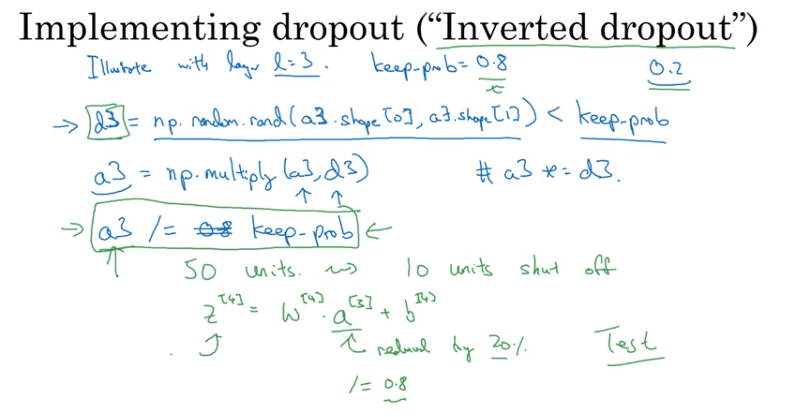 Implementing dropout (“Inverted dropout”)
Illustrate with layer l=3. keep-prob = 0.8 0.2
→ d3 = np.random.rand(a3.shape[0], a3.shape[1]) < keep-prob
a3 = np.multiply(a3, d3) # a3 *= d3.
→ a3 /= 0.8 keep-prob ←
50 units. ⇝ 10 units shut off
z[4] = W[4] · a[3] + b[4]
reduced by 20% Test
/= 0.8